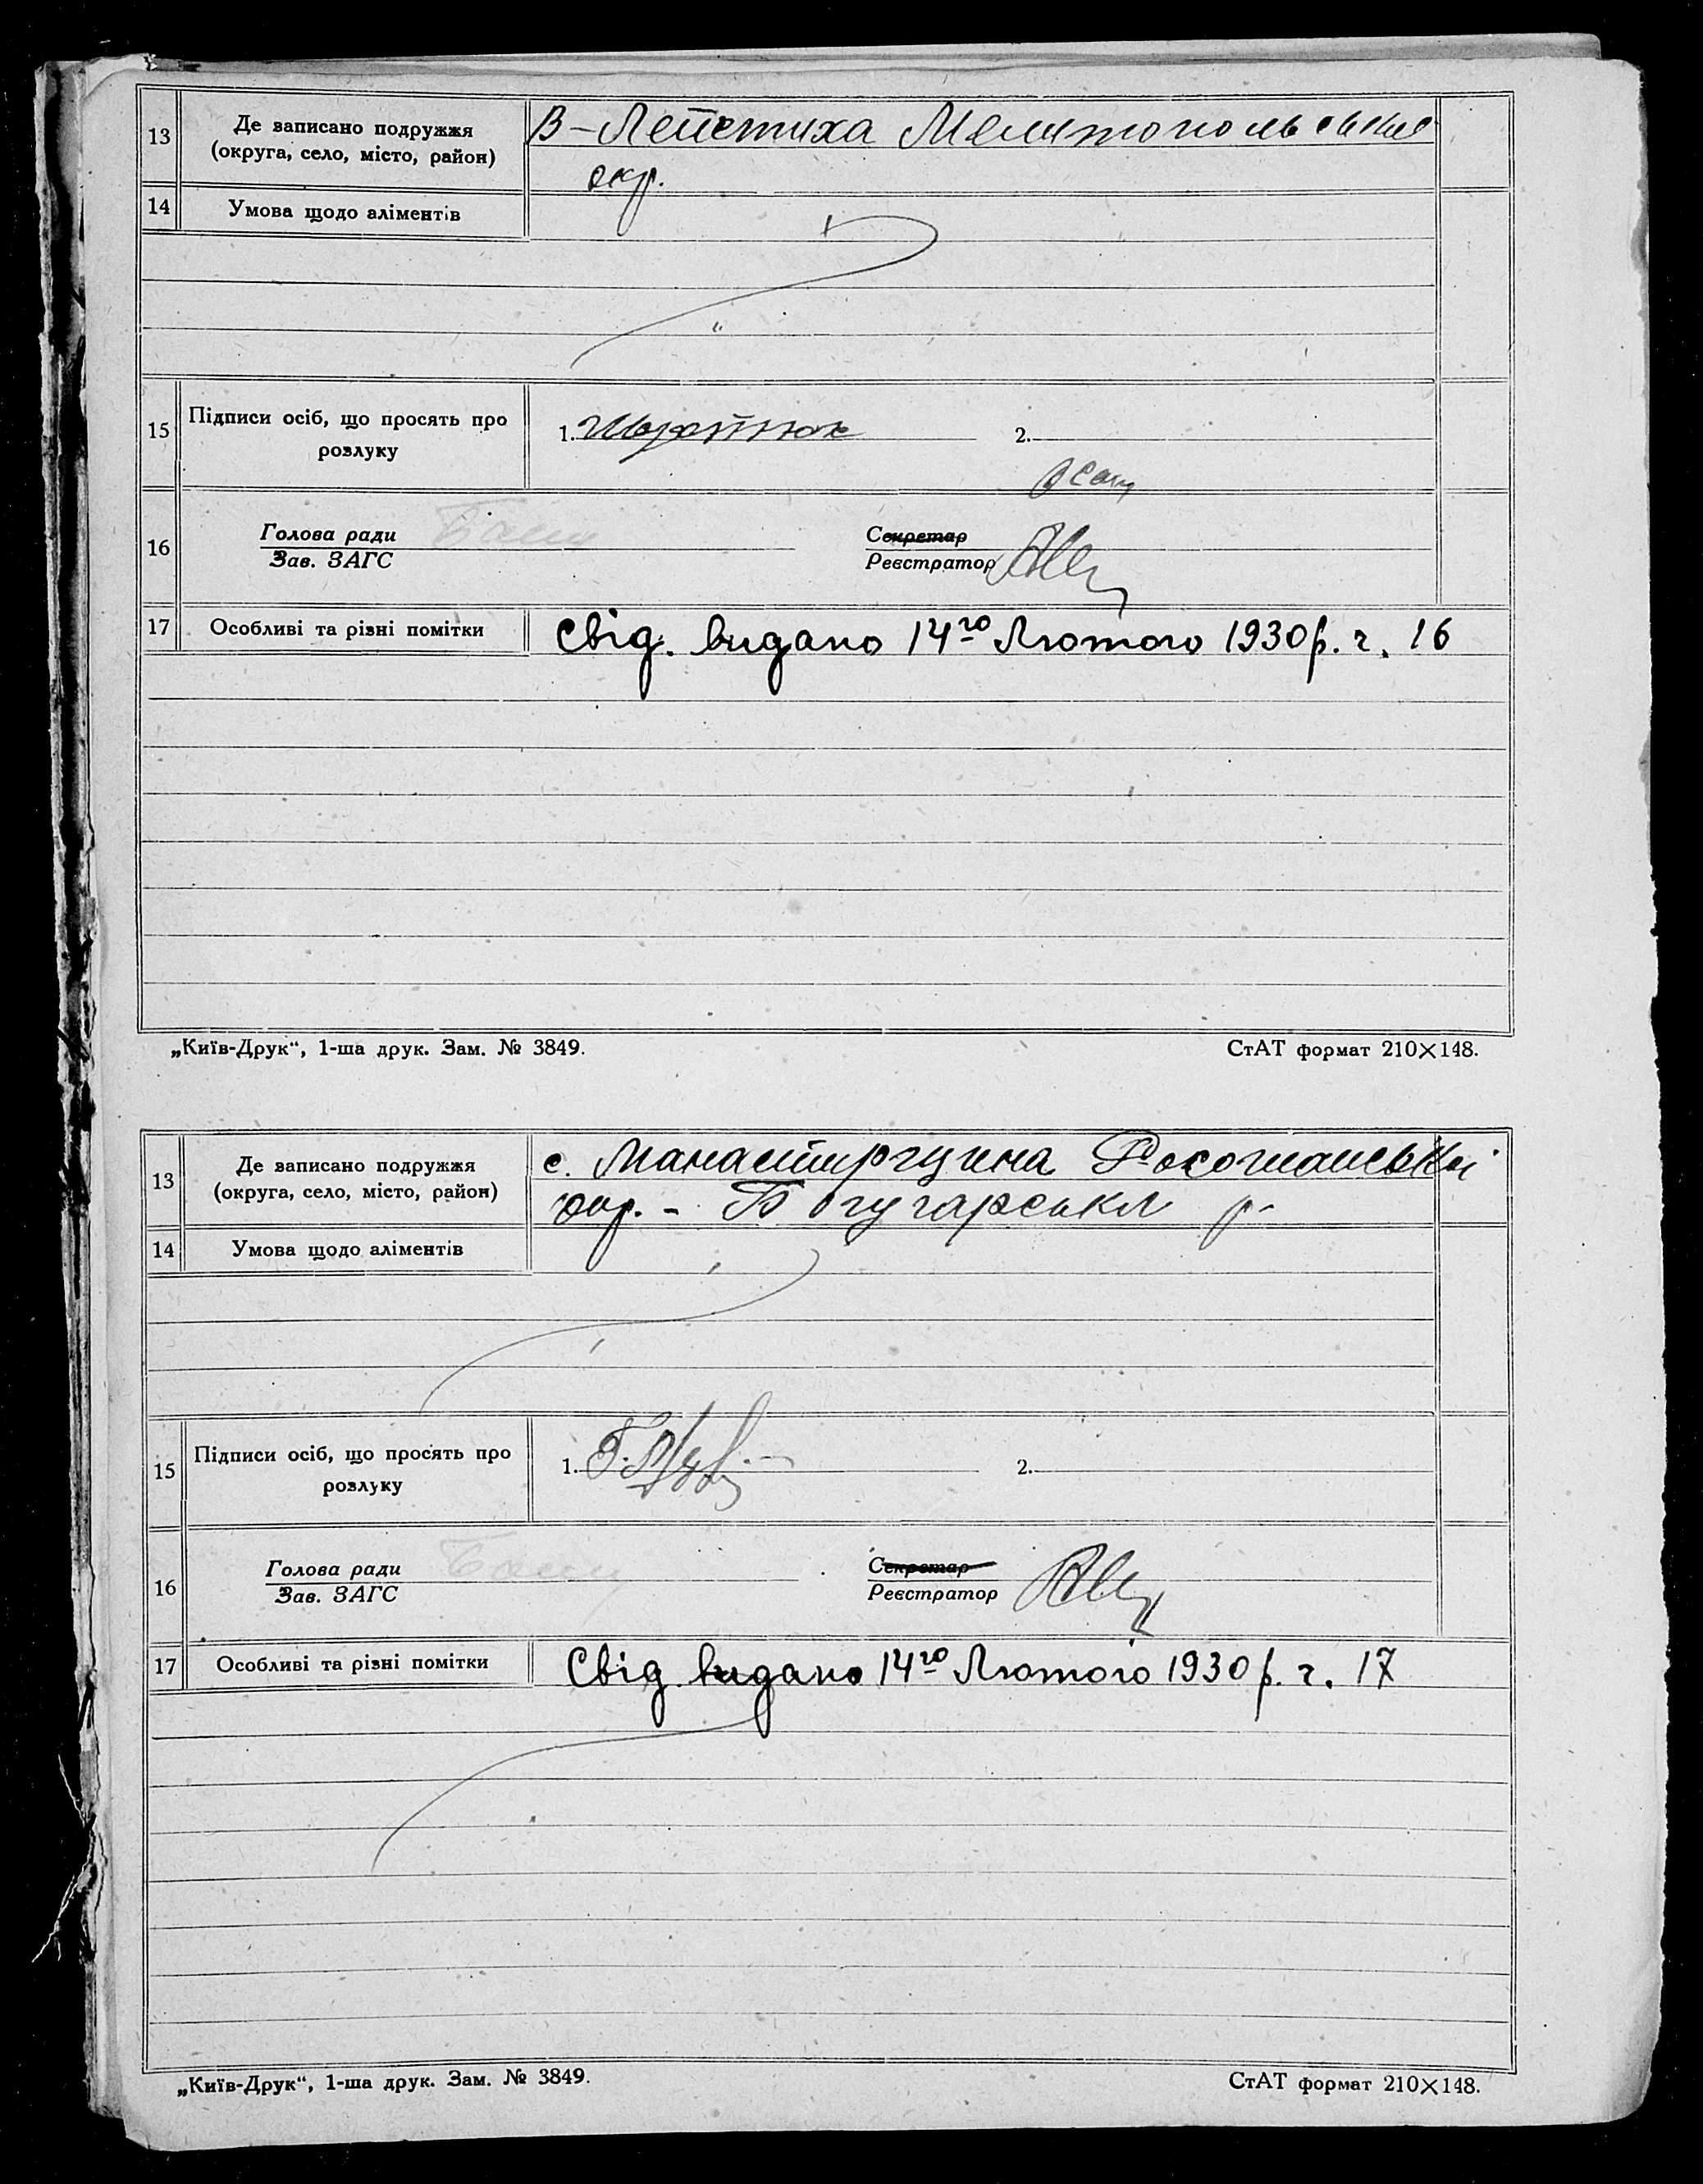 13
Де записано подружжя
(округа, село, місто, район)
В-Лепетиха Мелитопольської
окр.
14
Умова щодо аліментів
15
Підписи осіб, що просять про
розлуку
1.
2.
16
Голова ради
Зав. ЗАГС
Секретар
Реєстратор
17
Особливі та різні помітки
Свід. видано 14го Лютого 1930 р. ч. 16
„Київ-Друк“, 1-ша друк. Зам. № 3849.
СтАТ формат 210×148.
13
Де записано подружжя
(округа, село, місто, район)
с. Манастирщина
окр. - Богучарськ р-
14
Умова щодо аліментів
15
Підписи осіб, що просять про
розлуку
1.
2.
16
Голова ради
Зав. ЗАГС
Секретар
Реєстратор
17
Особливі та різні помітки
Свід. видано 14го Лютого 1930 р. ч. 17
„Київ-Друк“, 1-ша друк. Зам. № 3849.
СтАТ формат 210×148.